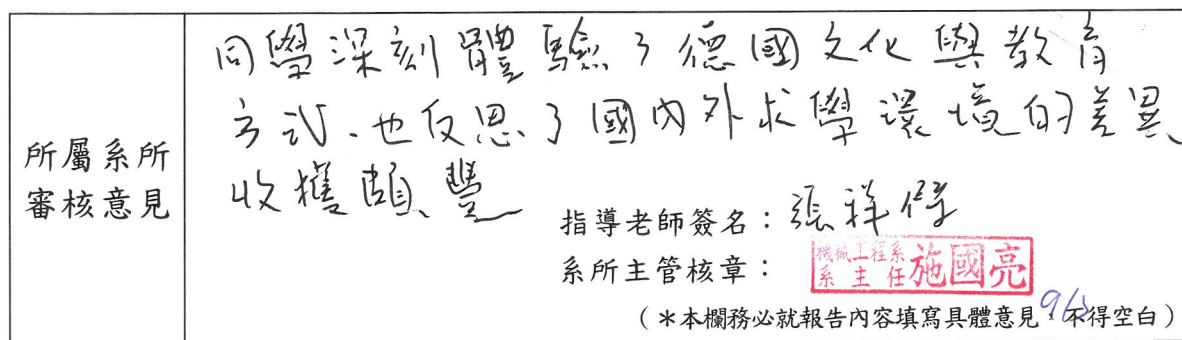 所屬系所
審核意見
同學深刻體驗了德國文化與教育
方式、也反思了國內外求學環境的差異
收獲頗豐
指導老師簽名：張祥傑
系所主管核章：
機械工程系
系主任 施國亮
（＊本欄務必就報告內容填寫具體意見，不得空白）